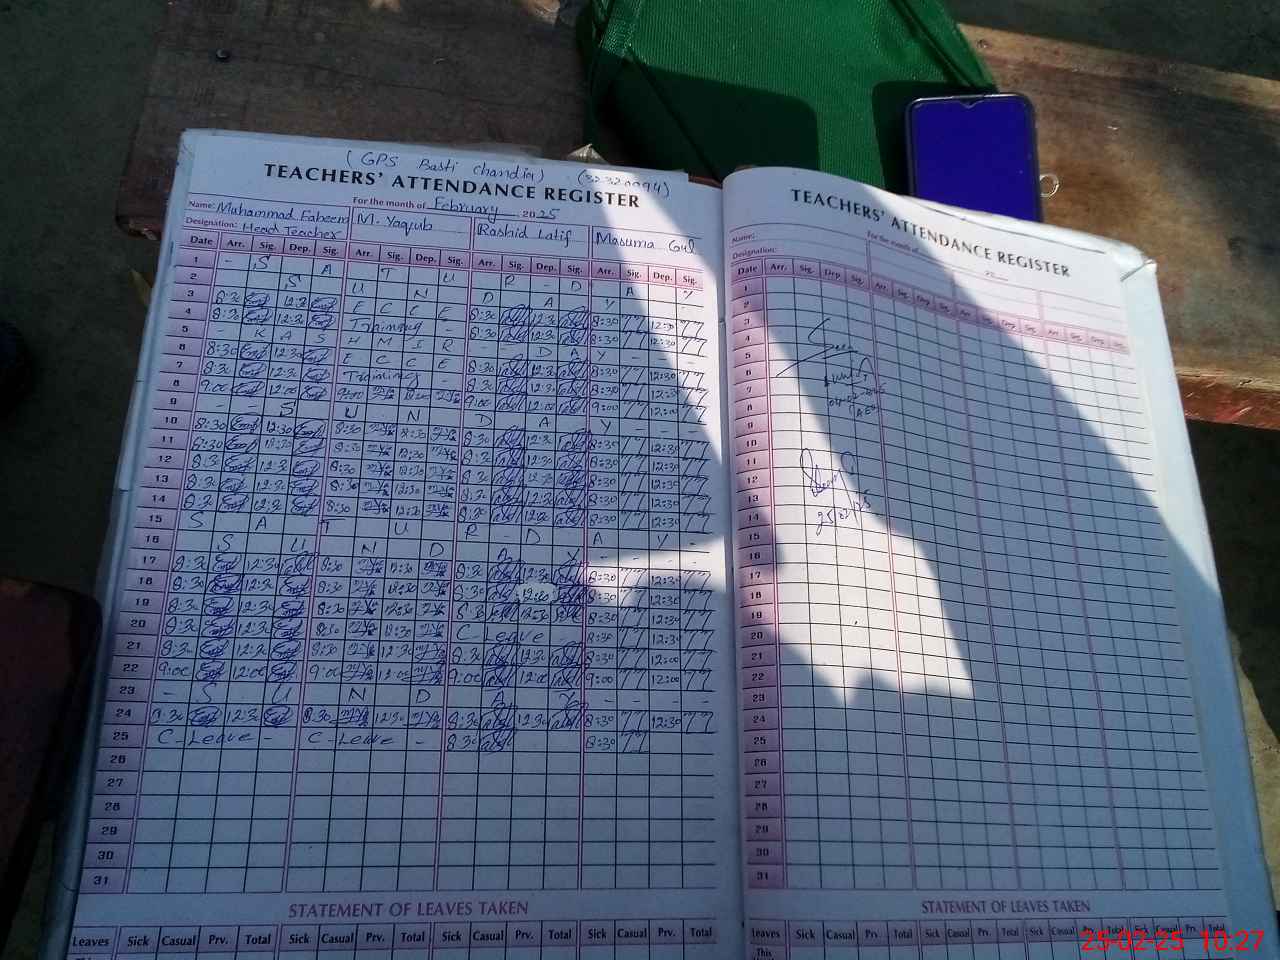 (GPS Basti Chandia) (32320094)
TEACHERS' ATTENDANCE REGISTER
For the month of February 2025
Name: Muhammad Faheem M. Yaqub Rashid Latif Masuma Gul
Designation: Head Teacher
Date Arr. Sig. Dep. Sig. Arr. Sig. Dep. Sig. Arr. Sig. Dep. Sig. Arr. Sig. Dep. Sig.
1 - S A T U R - D A Y
2 S U N D A Y - -
3 8:30 12:30 E C C E 8:30 12:30 8:30 12:30
4 8:30 12:30 Training - 8:30 12:30 8:30 12:30
5 - K A S H M I R - - D A Y - -
6 8:30 12:30 E C C E 8:30 12:30 8:30 12:30
7 8:30 12:30 Training - 8:30 12:30 8:30 12:30
8 9:00 12:00 9:00 12:00 9:00 12:00 9:00 12:00
9 - - S U N D A Y - - -
10 8:30 12:30 8:30 12:30 8:30 12:30 8:30 12:30
11 8:30 12:30 8:30 12:30 8:30 12:30 8:30 12:30
12 8:30 12:30 8:30 12:30 8:30 12:30 8:30 12:30
13 8:30 12:30 8:30 12:30 8:30 12:30 8:30 12:30
14 8:30 12:30 8:30 12:30 8:30 12:30 8:30 12:30
15 S A T U R - D A Y -
16 S U N D A Y - - -
17 8:30 12:30 8:30 12:30 8:30 12:30 8:30 12:30
18 8:30 12:30 8:30 12:30 8:30 12:30 8:30 12:30
19 8:30 12:30 8:30 12:30 8:30 12:30 8:30 12:30
20 8:30 12:30 8:30 12:30 C-Leave - 8:30 12:30
21 8:30 12:30 8:30 12:30 8:30 12:30 8:30 12:00
22 9:00 12:00 9:00 12:00 9:00 12:00 9:00 12:00
23 - S U N D A Y - - -
24 8:30 12:30 8:30 12:30 8:30 12:30 8:30 12:30
25 C-Leave - C-Leave - 8:30 8:30
26
27
28
29
30
31
STATEMENT OF LEAVES TAKEN
Leaves Sick Casual Prv. Total Sick Casual Prv. Total Sick Casual Prv. Total Sick Casual Prv. Total
This
TEACHERS' ATTENDANCE REGISTER
For the month of 20
Name:
Designation:
Date Arr. Sig. Dep Sig. Arr. Sig. Dep. Sig. Arr. Sig. Dep. Sig. Arr. Sig. Dep. Sig.
1
2
3
4
5
6
7
8
9
10
11
12
25/02/25
13
14
15
16
17
18
19
20
21
22
23
24
25
26
27
28
29
30
31
STATEMENT OF LEAVES TAKEN
Leaves Sick Casual Prv. Total Sick Casual Prv. Total Sick Casual Prv. Total Sick Casual Prv. Total
This
25-02-25 10:27